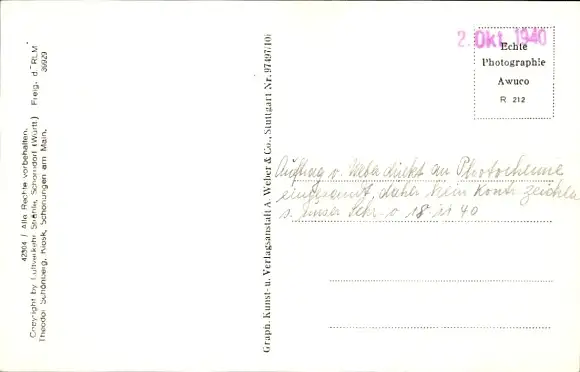 42304 / Alle Rechte vorbehalten.
Copyright by Luftverkehr Strähle, Schorndorf (Württ) Freig. d. RLM
Theodor Schönberg, Kiosk, Schonungen am Main. 36929
Graph. Kunst- u. Verlagsanstalt A. Weber & Co., Stuttgart Nr. 97497/10
2. Okt. 1940
Echte
Photographie
Awuco
R 212
Auftrag v. Weber direkt an Photochemie
eingesandt, daher kein Kontr zeichen
s. unser Schr. v 18. 11 40